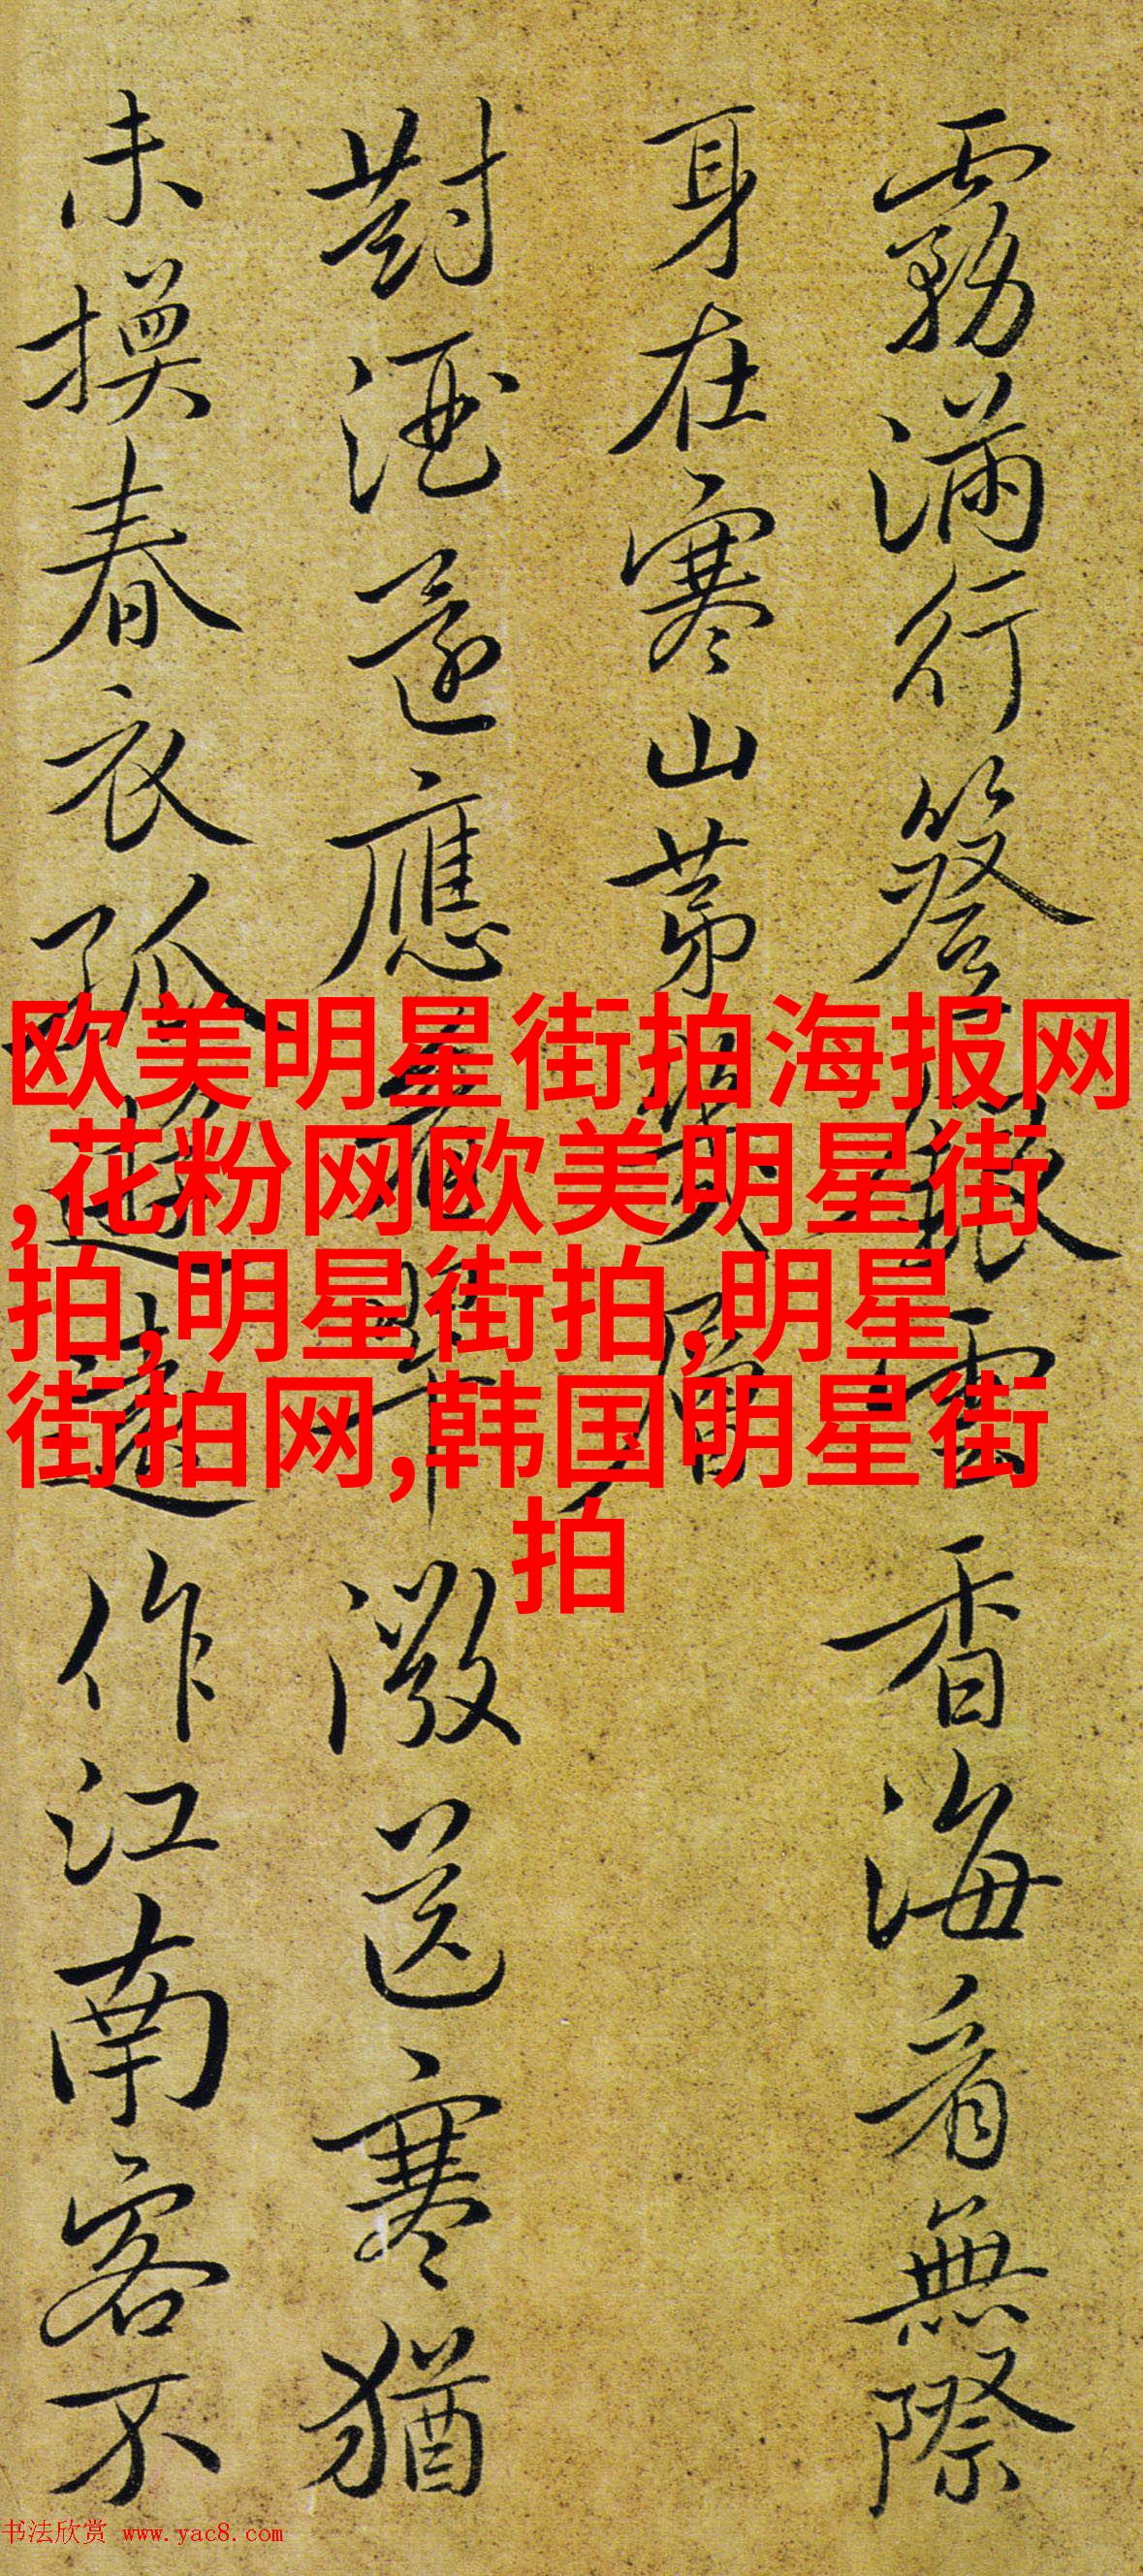 霧滿行簦雲香海看無際
身在寒山第層
對酒還應送寒猶
未換春衣孤遊遠作江南客不
欧美明星街拍海报网
,花粉网欧美明星街
拍,明星街拍,明星
街拍网,韩国明星街
拍
书法欣赏 www.yac8.com